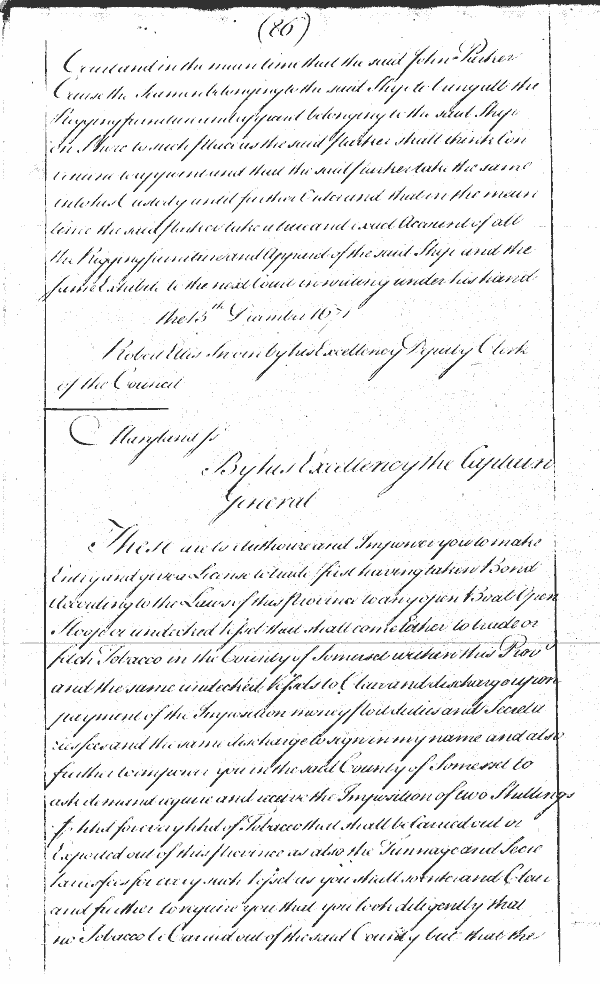 (86)
Court and in the mean time that the said John Parker
Cause the Seamen belonging to the said Ship to unrigg all the
Rigging furniture and apparel belonging to the said Ship
on Shore to such place as the said Parker shall think Con
venient to appoint and that the said Parker take the same
into his Custody until further Order and that in the mean
time the said Parker take a true and exact Account of all
the Rigging furniture and Apparel of the said Ship and the
same Exhibite to the next Court in writing under his hand
the 15th December 1671
Robert Ellis Sworn by his Excellency Deputy Clerk
of the Council
Maryland ss
By his Excellency the Captain
General
These are to Authorize and Impower you to make
Entry and give a License to trade first having taken Bond
According to the Laws of this Province to any open Boat Open
Sloop or undecked Vessel that shall come Either to trade or
fetch Tobacco in the County of Somerset within this Prove
and the same undecked Vessels to Clear and discharge upon
payment of the Imposition money Port duties and Secreta
ries fees and the same discharge to sign in my name and also
further to impower you in the said County of Somerset to
ask demand require and receive the Imposition of two Shillings
P hhd for every hhd of Tobacco that shall be Carried out or
Exported out of this province as also the Tunnage and Secre
taries fees for every such Vessel as you shall so enter and Clear
and further to require you that you look diligently that
no Tobacco be Carried out of the said County but that the